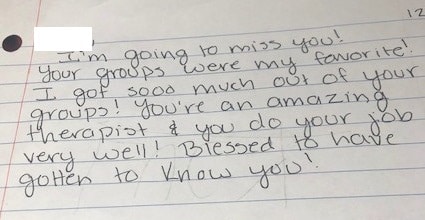 12
I'm going to miss you!
Your groups were my favorite!
I got sooo much out of your
groups! You're an amazing
therapist & you do your job
very well! Blessed to have
gotten to know you!